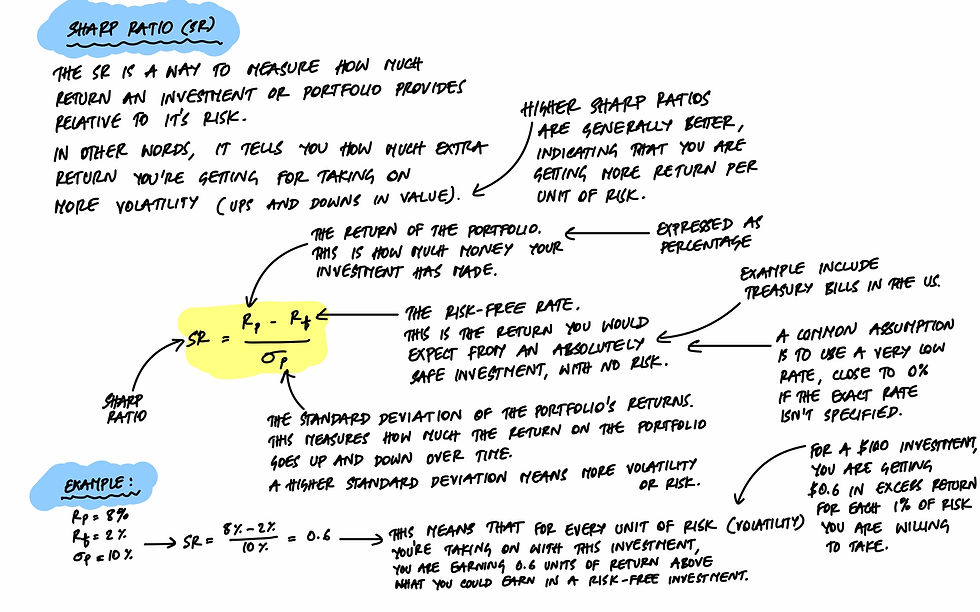 SHARP RATIO (SR)
THE SR IS A WAY TO MEASURE HOW MUCH
RETURN AN INVESTMENT OR PORTFOLIO PROVIDES
RELATIVE TO IT'S RISK.
IN OTHER WORDS, IT TELLS YOU HOW MUCH EXTRA
RETURN YOU'RE GETTING FOR TAKING ON
MORE VOLATILITY (UPS AND DOWNS IN VALUE).
HIGHER SHARP RATIOS
ARE GENERALLY BETTER,
INDICATING THAT YOU ARE
GETTING MORE RETURN PER
UNIT OF RISK.
THE RETURN OF THE PORTFOLIO.
THIS IS HOW MUCH MONEY YOUR
INVESTMENT HAS MADE.
EXPRESSED AS
PERCENTAGE
EXAMPLE INCLUDE
TREASURY BILLS IN THE US.
SR = (Rp - Rf) / σp
SHARP
RATIO
THE RISK-FREE RATE.
THIS IS THE RETURN YOU WOULD
EXPECT FROM AN ABSOLUTELY
SAFE INVESTMENT, WITH NO RISK.
A COMMON ASSUMPTION
IS TO USE A VERY LOW
RATE, CLOSE TO 0%
IF THE EXACT RATE
ISN'T SPECIFIED.
THE STANDARD DEVIATION OF THE PORTFOLIO'S RETURNS.
THIS MEASURES HOW MUCH THE RETURN ON THE PORTFOLIO
GOES UP AND DOWN OVER TIME.
A HIGHER STANDARD DEVIATION MEANS MORE VOLATILITY
OR RISK.
EXAMPLE:
Rp = 8%
Rf = 2%
σp = 10%
SR = (8% - 2%) / 10% = 0.6
THIS MEANS THAT FOR EVERY UNIT OF RISK (VOLATILITY)
YOU'RE TAKING ON WITH THIS INVESTMENT,
YOU ARE EARNING 0.6 UNITS OF RETURN ABOVE
WHAT YOU COULD EARN IN A RISK-FREE INVESTMENT.
FOR A $100 INVESTMENT,
YOU ARE GETTING
$0.6 IN EXCESS RETURN
FOR EACH 1% OF RISK
YOU ARE WILLING
TO TAKE.